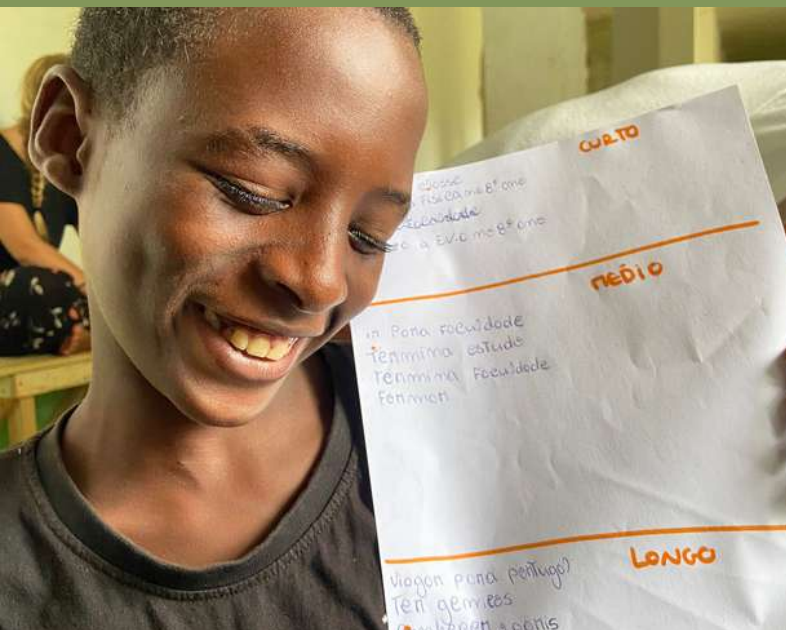 CURTO
classe
Fisica no 8º ano
Faculdade
a EV.O no 8º ano
MEDIO
in Pona Faculdade
Tenmina estudo
Tenmina Faculdade
Fonmon
LONGO
Viagon pona pontugal
Ten gemeos